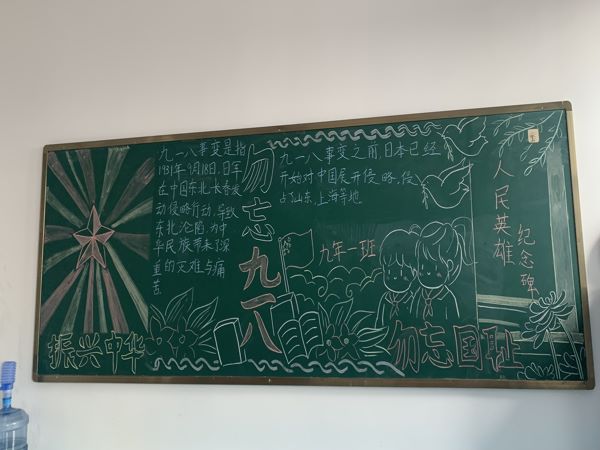 九一八事变是指
1931年9月18日,日军
在中国东北长春发
动侵略行动,导致
东北沦陷,为中
华民族带来了深
重的灾难与痛
苦
勿忘九一八
九一八事变之前,日本已经
开始对中国展开侵略,侵
占了山东,上海等地
九年一班
人民英雄
纪念碑
振兴中华
勿忘国耻